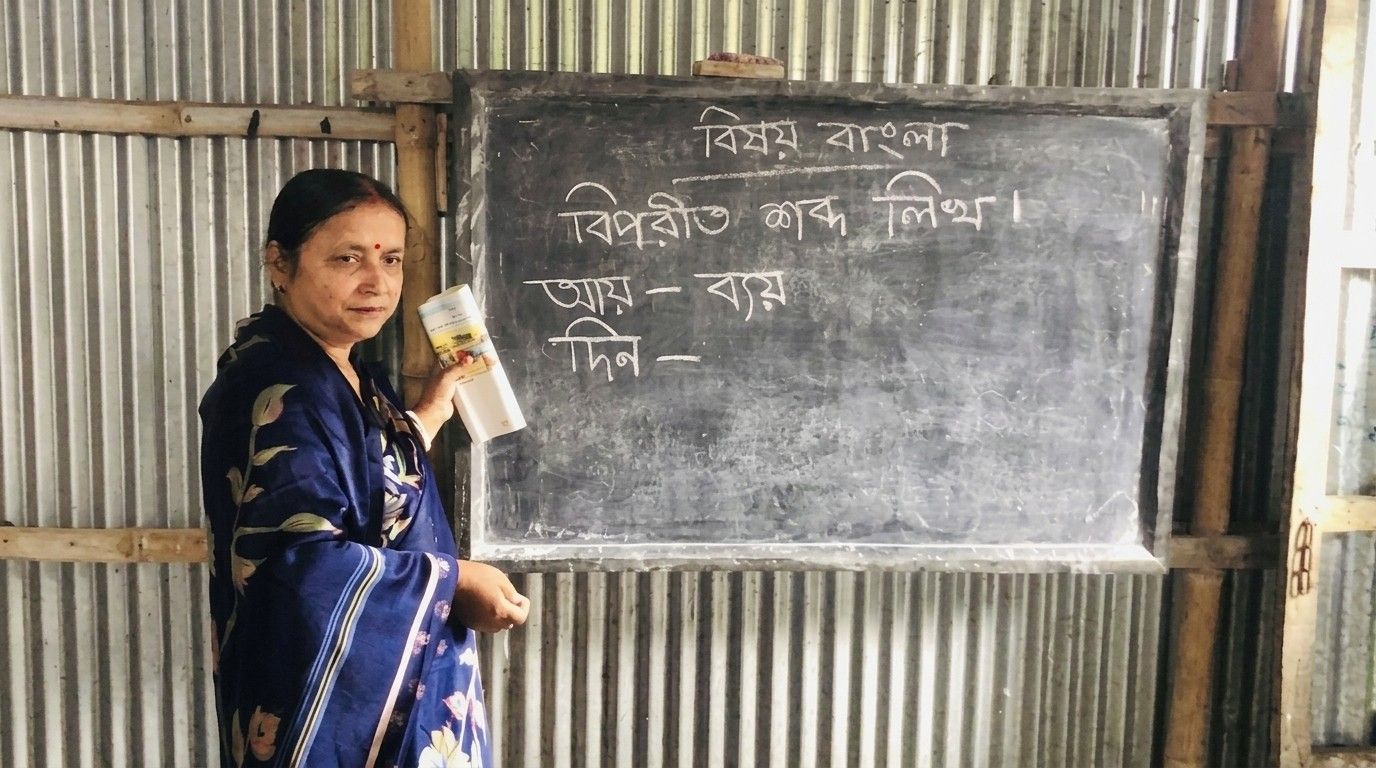 বিষয় বাংলা
বিপরীত শব্দ লিখ।
আয় – ব্যয়
দিন –